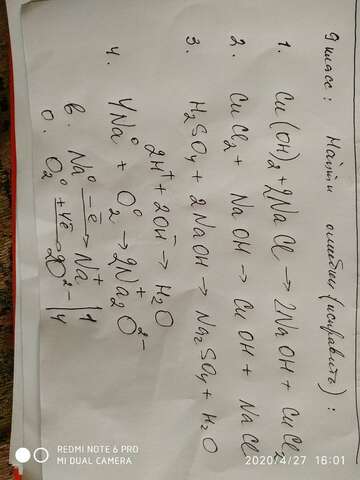 9 класс: Найти ошибки (исправить):
1. Cu(OH)2 + 2NaCl → 2NaOH + CuCl2
2. CuCl2 + NaOH → CuOH + NaCl
3. H2SO4 + 2NaOH → Na2SO4 + H2O
2H⁺ + 2OH⁻ → H2O
4. 4Na⁰ + O2⁰ → 2Na2⁺O²⁻
в. Na⁰ -ē→ Na⁺ | 1
о. O2⁰ +4ē→ 2O²⁻ | 4
REDMI NOTE 6 PRO
MI DUAL CAMERA
2020/4/27 16:01